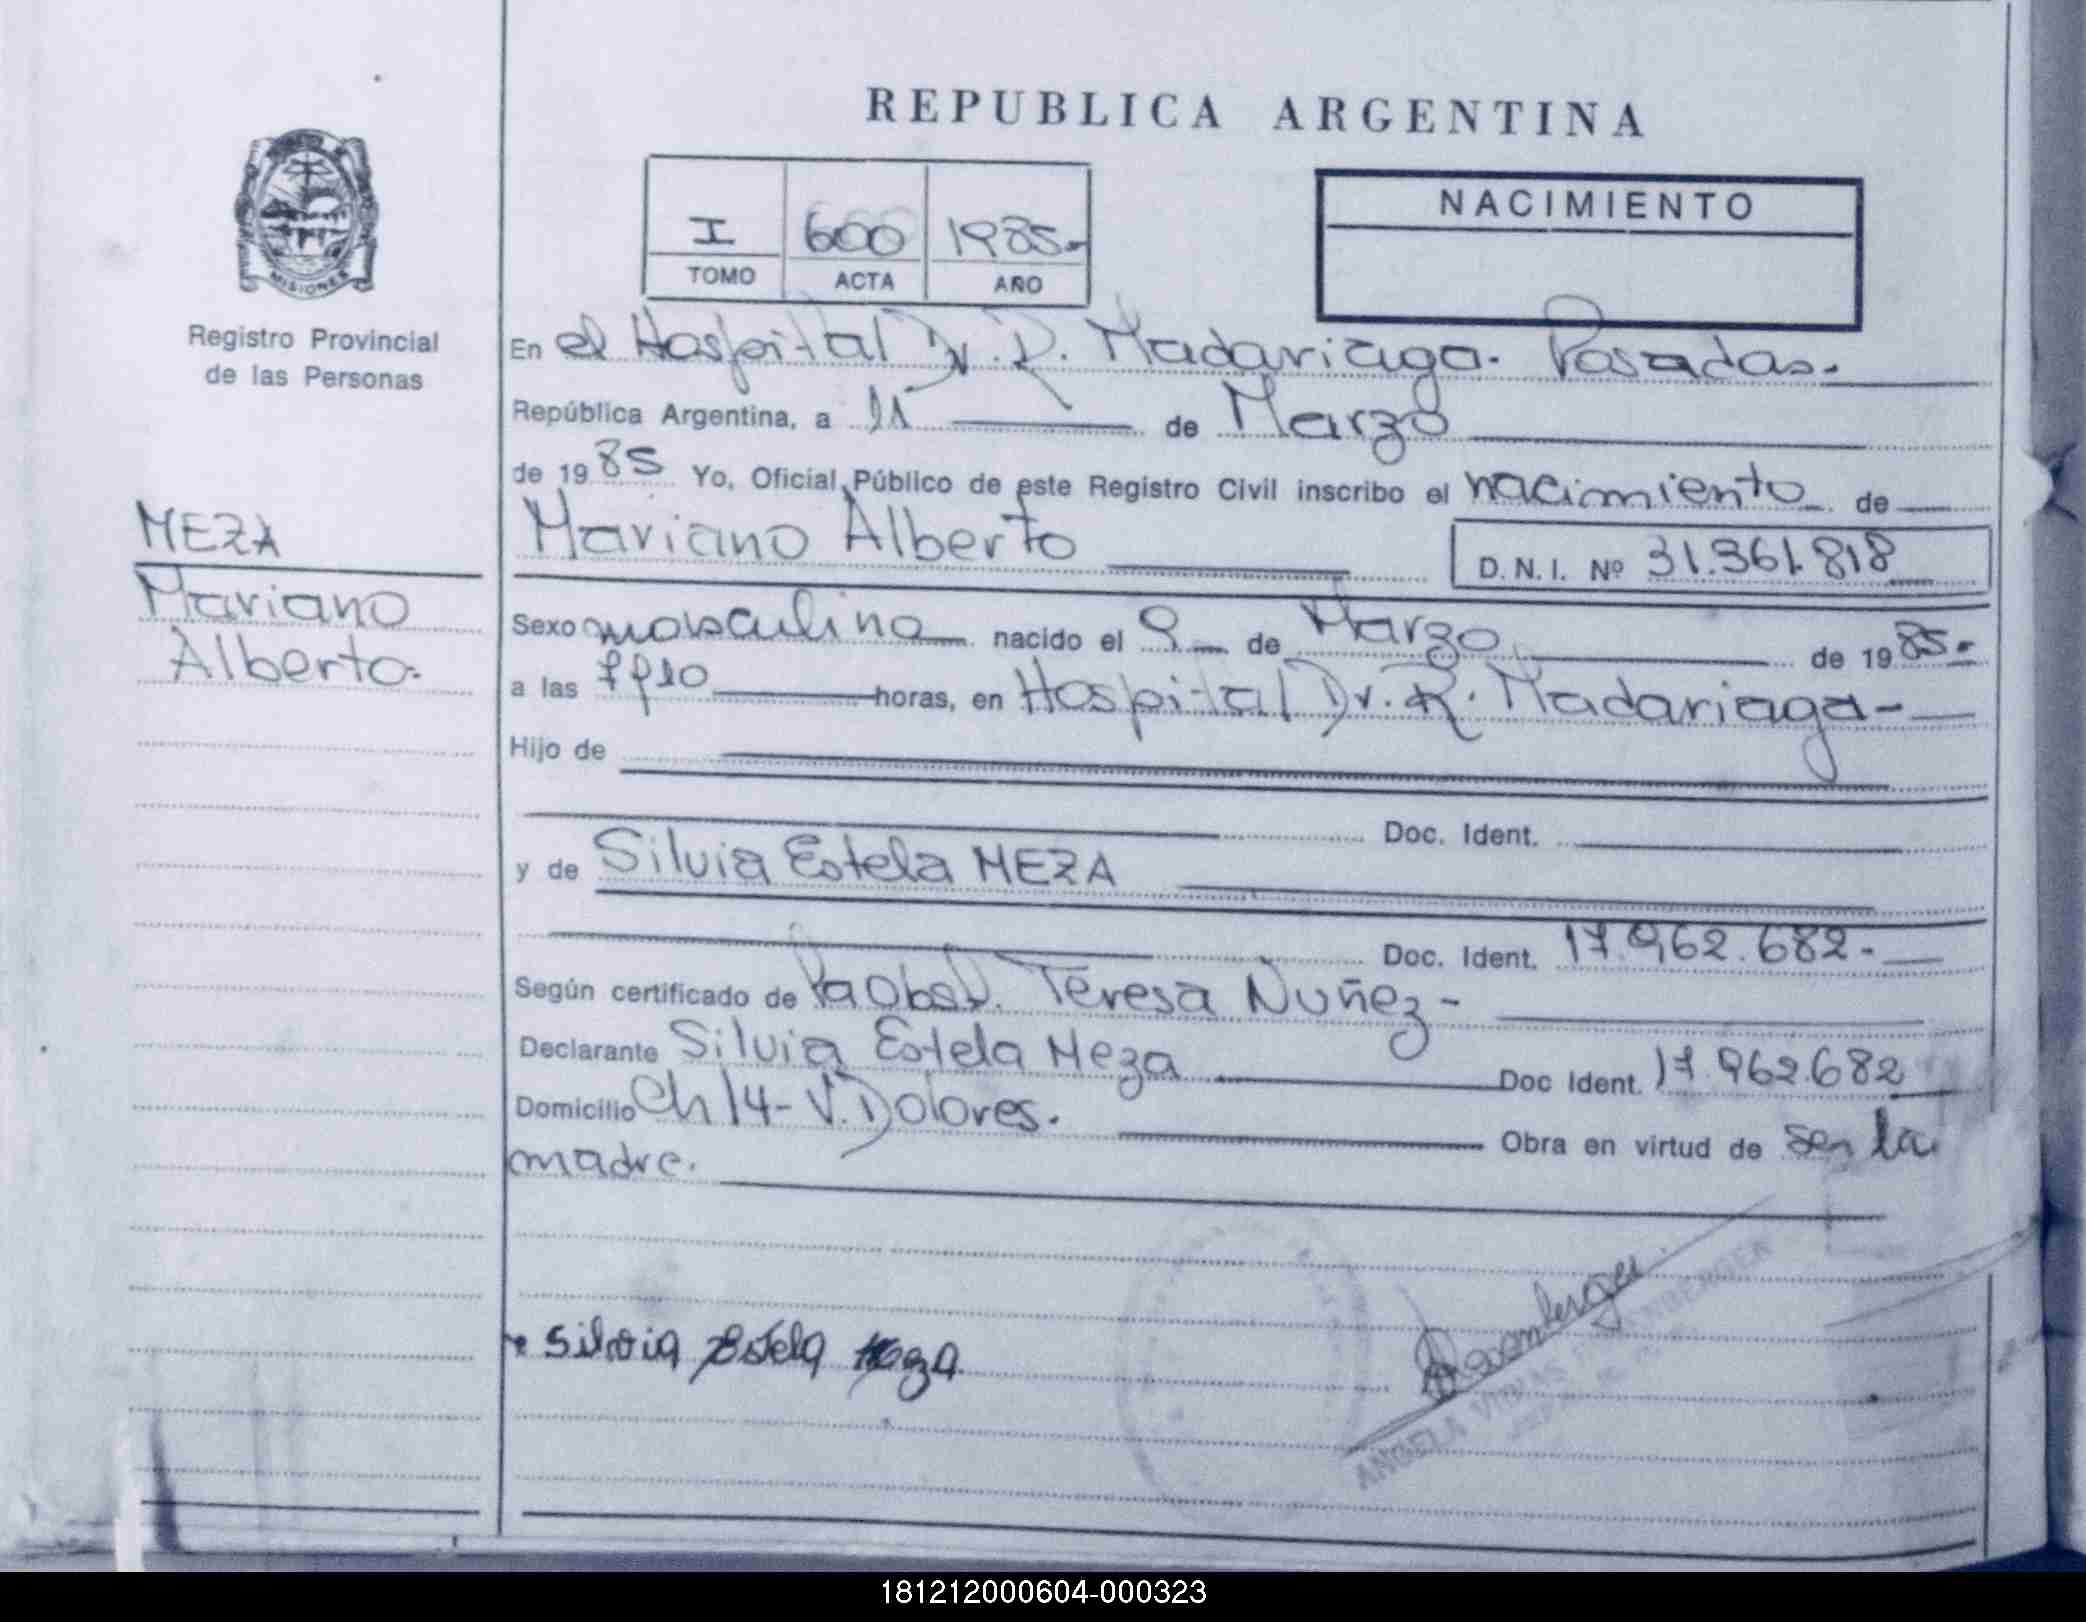 REPUBLICA ARGENTINA
MISIONES
Registro Provincial
de las Personas
I 600 1985.-
TOMO ACTA AÑO
NACIMIENTO
En el Hospital Dr. R. Madariaga. Posadas.
República Argentina, a 11 de Marzo
de 1985 Yo, Oficial Público de este Registro Civil inscribo el nacimiento de
Mariano Alberto D.N.I. Nº 31.361.818
MEZA
Mariano
Alberto.
Sexo masculino nacido el 9 de Marzo de 1985.-
a las horas, en Hospital Dr. R. Madariaga-
Hijo de
Doc. Ident.
y de Silvia Estela MEZA
Doc. Ident. 17.962.682-
Según certificado de Teresa Nuñez-
Declarante Silvia Estela Meza Doc Ident. 17.962.682
Domicilio Ch 14- V. Dolores. Obra en virtud de ser la
madre.
Silvia Estela Meza
ANGELA
181212000604-000323